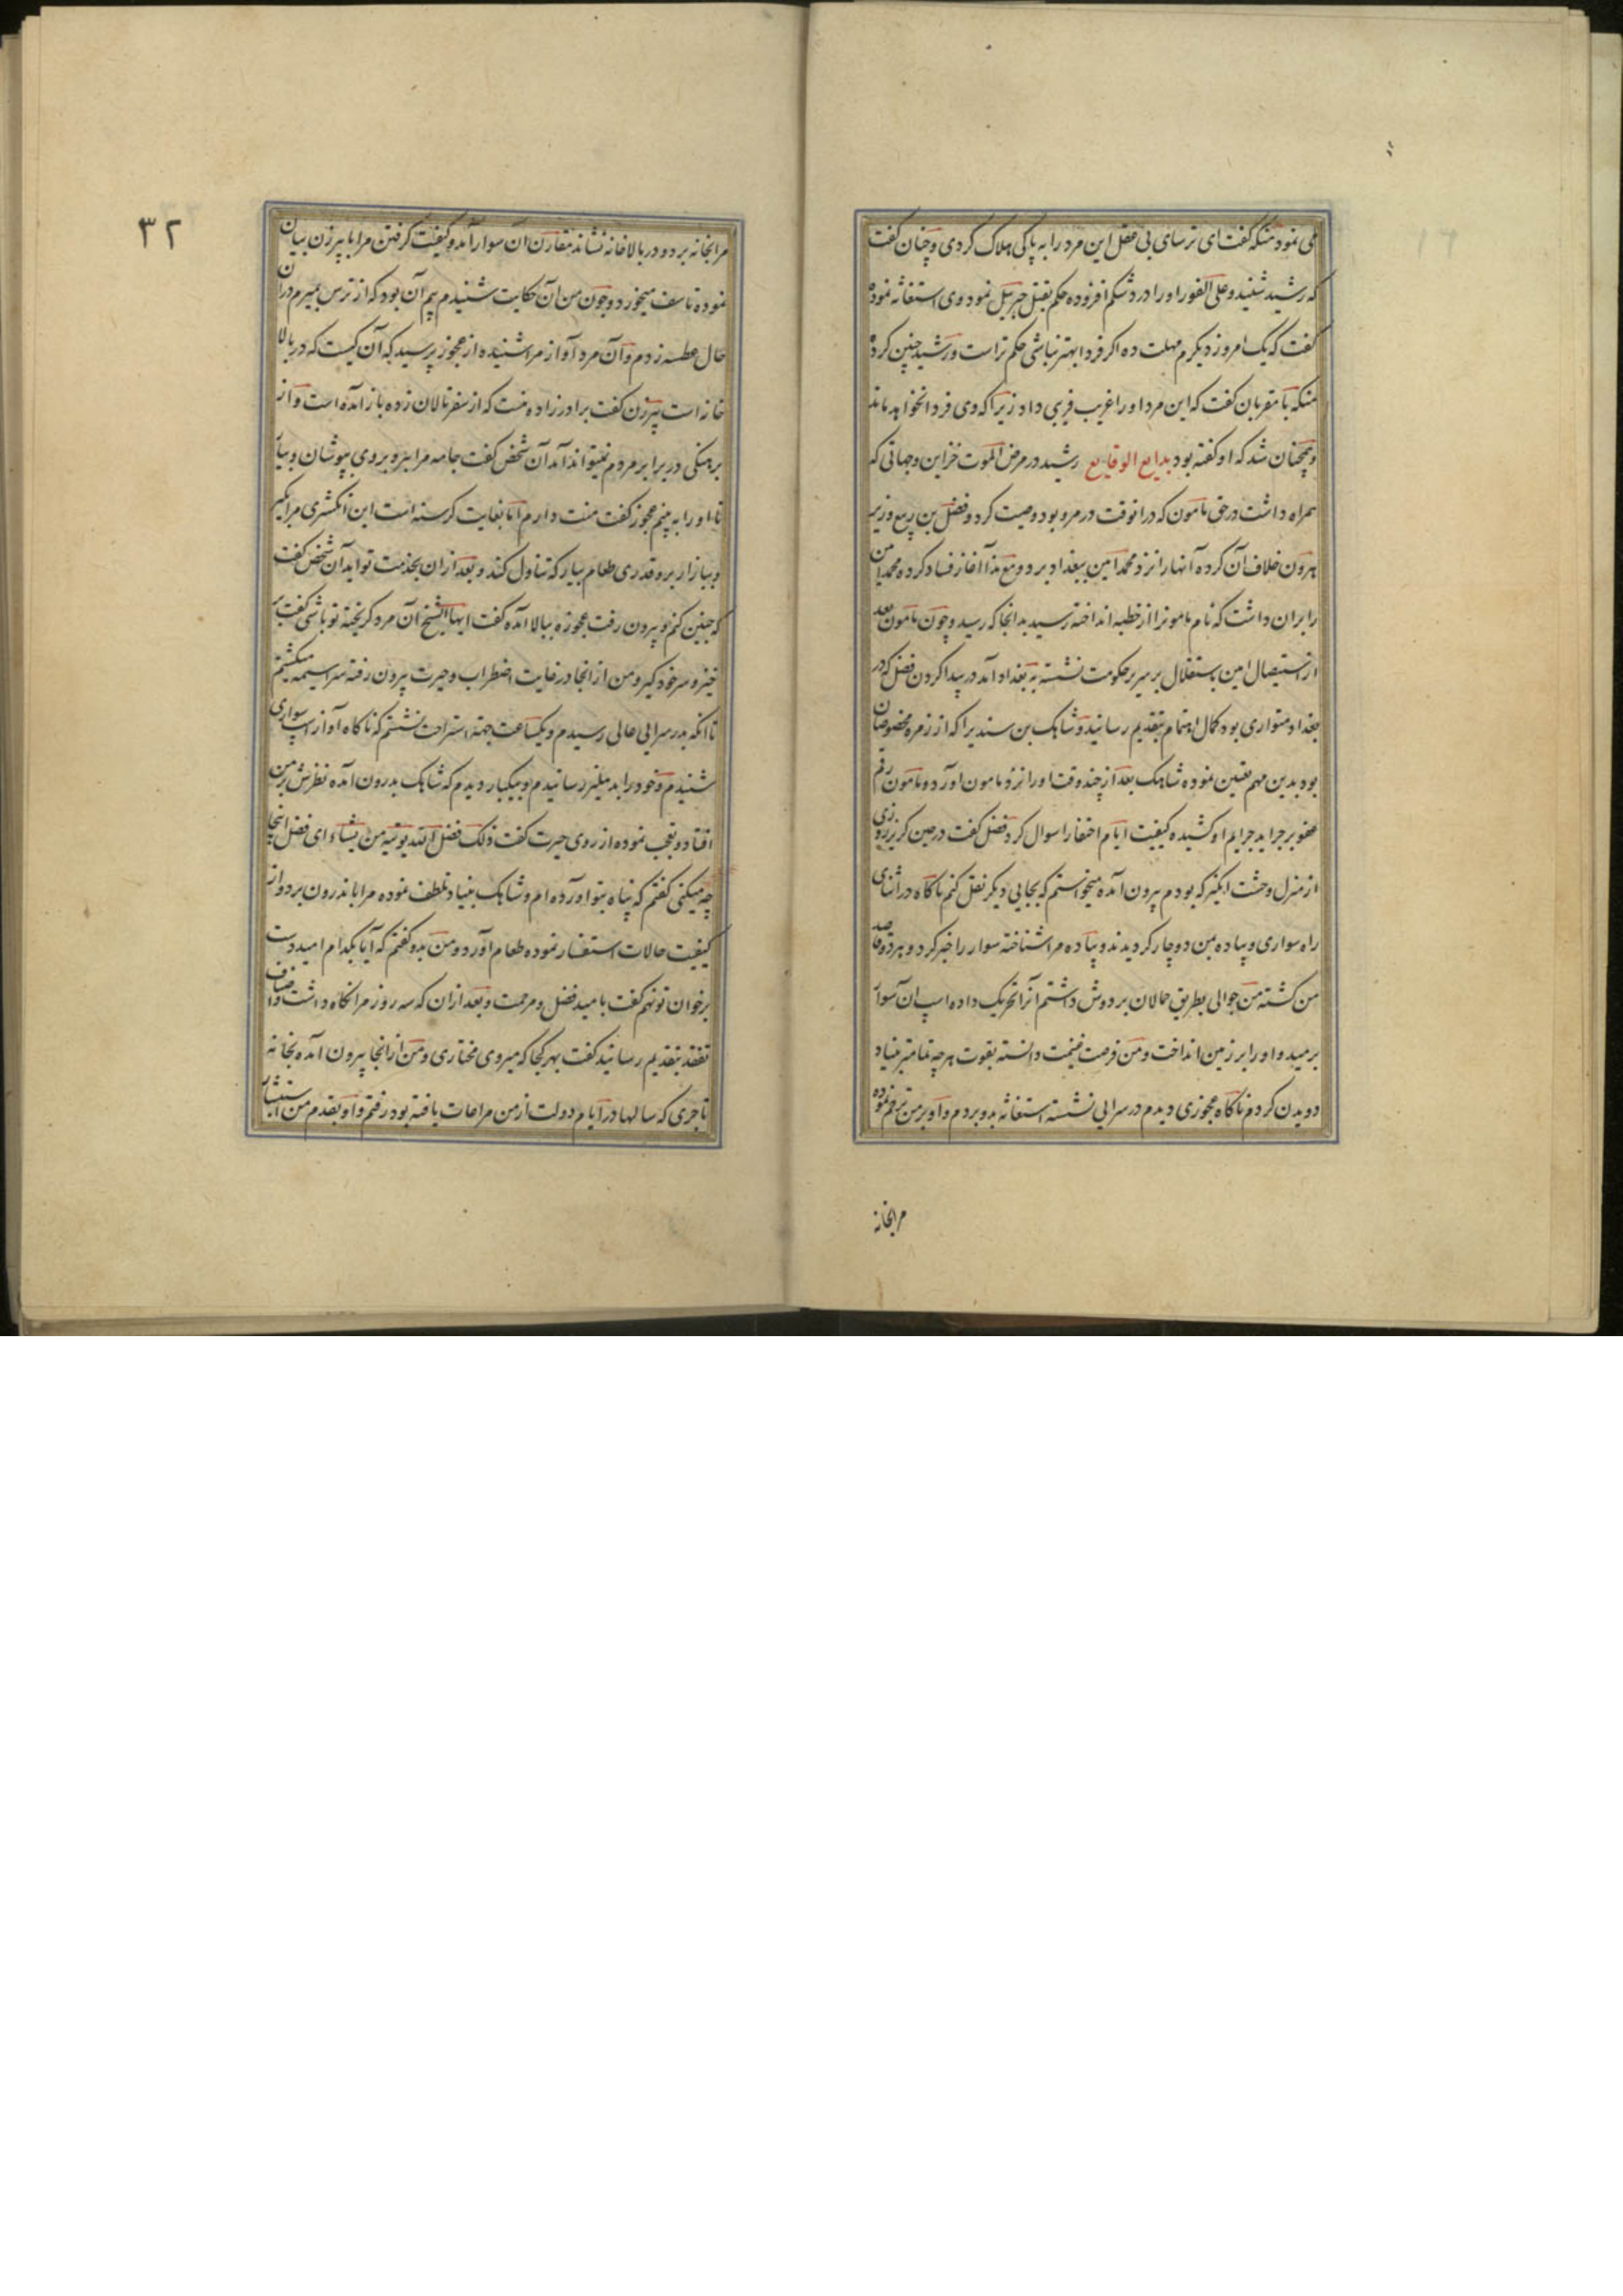 می نمود منکه گفت ای ترسای بی عقل این مرد را به پاکی هلاک کردی و چنان گفت
که رشید شنید و علی الفور او را درد شکم افزوده حکم بقتل جبرئیل نمود وی استغاثه نموده
گفت که یک امروز دیگرم مهلت ده اگر فردا بهتر نباشی حکم تراست و رشید چنین کرد
منکه با مقربان گفت که این مرد او را غریب فریبی داد زیرا که وی فردا نخواهد ماند
و همچنان شد که او گفته بود بدایع الوقایع رشید در مرض الموت خزاین و جهاتی که
همراه داشت در حق مامون که در انوقت در مرو بود وصیت کرد و فضل بن ربیع وزیر
هرون خلاف آن کرده آنها را نزد محمد امین ببغداد برد و مع هذا آغاز فساد کرده محمد امین
را بران داشت که نام مامونرا از خطبه انداخته رسید بدانجا که رسید و چون مامون بعد
از استیصال امین باستقلال بر سریر حکومت نشسته به بغداد آمد در پیدا کردن فضل که در
بغداد متواری بود کمال اهتمام بتقدیم رسانید و شاهک بن سندیرا که از زمره مخصوصان
بود بدین مهم تعین نموده شاهک بعد از چند وقت او را نزد مامون آورد و مامون رقم
عفو بر جراید جرایم او کشیده کیفیت ایام اختفا را سوال کرد فضل گفت در حین گریز روزی
از منزل وحشت انگیز که بودم بیرون آمده میخواستم که بجایی دیگر نقل کنم ناگاه در اثنای
راه سواری و پیاده بمن دوچار گردیدند و پیاده مرا شناخته سوار را خبر کرد و هر دو قاصد
من گشته من جوالی بطریق حمالان بر دوش داشتم آنرا تحریک داده اسپ آن سوار
برمید و او را بر زمین انداخت و من فرصت غنیمت دانسته بقوت هر چه تمامتر بنیاد
دویدن کردم ناگاه عجوزی دیدم در سرایی نشسته استغاثه بدو بردم و او بر من ترحم نموده
مرا بخانه
٣٢
مرا بخانه برد و در بالاخانه نشاند مقارن آن سوار آمد و کیفیت گرفتن مرا با پیرزن بیان
نموده تاسف میخورد و چون من آن حکایت شنیدم بیم آن بود که از ترس بمیرم در آن
حال عطسه زدم و آن مرد آواز مرا شنیده از عجوز پرسید که آن کیست که در بالا
خانه است پیرزن گفت برادرزاده منست که از سفر تالان زده باز آمده است و از
برهنگی در برابر مردم نمیتواند آمد آن شخص گفت جامه مرا ببر و بر وی بپوشان و بیار
تا او را به بینم عجوز گفت منت دارم اما بغایت گرسنه است این انگشتری مرا بگیر
و ببازار برو قدری طعام بیار که تناول کند و بعد ازان بخدمت تو آید آن شخص گفت
که چنین کنم و بیرون رفت عجوزه ببالا آمده گفت ایها الشیخ آن مرد گریخته تو باشی گفت
خیز و سر خود گیر و من از انجا در غایت اضطراب و حیرت بیرون رفته سراسیمه میگشتم
تا انکه بدر سرایی عالی رسیدم و یکساعت جهة استراحت نشستم که ناگاه آواز اسپ سواری
شنیدم و خود را بدهلیز رسانیدم و بیکبار دیدم که شاهک بدرون آمده نظرش بر من
افتاد و تعجب نموده از روی حیرت گفت ذلک فضل الله یوتیه من یشاء ای فضل اینجا
چه میکنی گفتم که پناه بتو آورده ام و شاهک بنیاد تلطف نموده مرا باندرون برد و از
کیفیت حالات استفسار نموده طعام آورد و من بدو گفتم که آیا بکدام امید دست
بر خوان تو نهم گفت بامید فضل و مرحمت و بعد ازان که سه روز مرا نگاه داشت و اصناف
تفقد بتقدیم رسانید گفت بهر کجا که میروی مختاری و من از انجا بیرون آمده بخانه
تاجری که سالها در ایام دولت از من مراعات یافته بود رفتم و او بقدم من استبشار